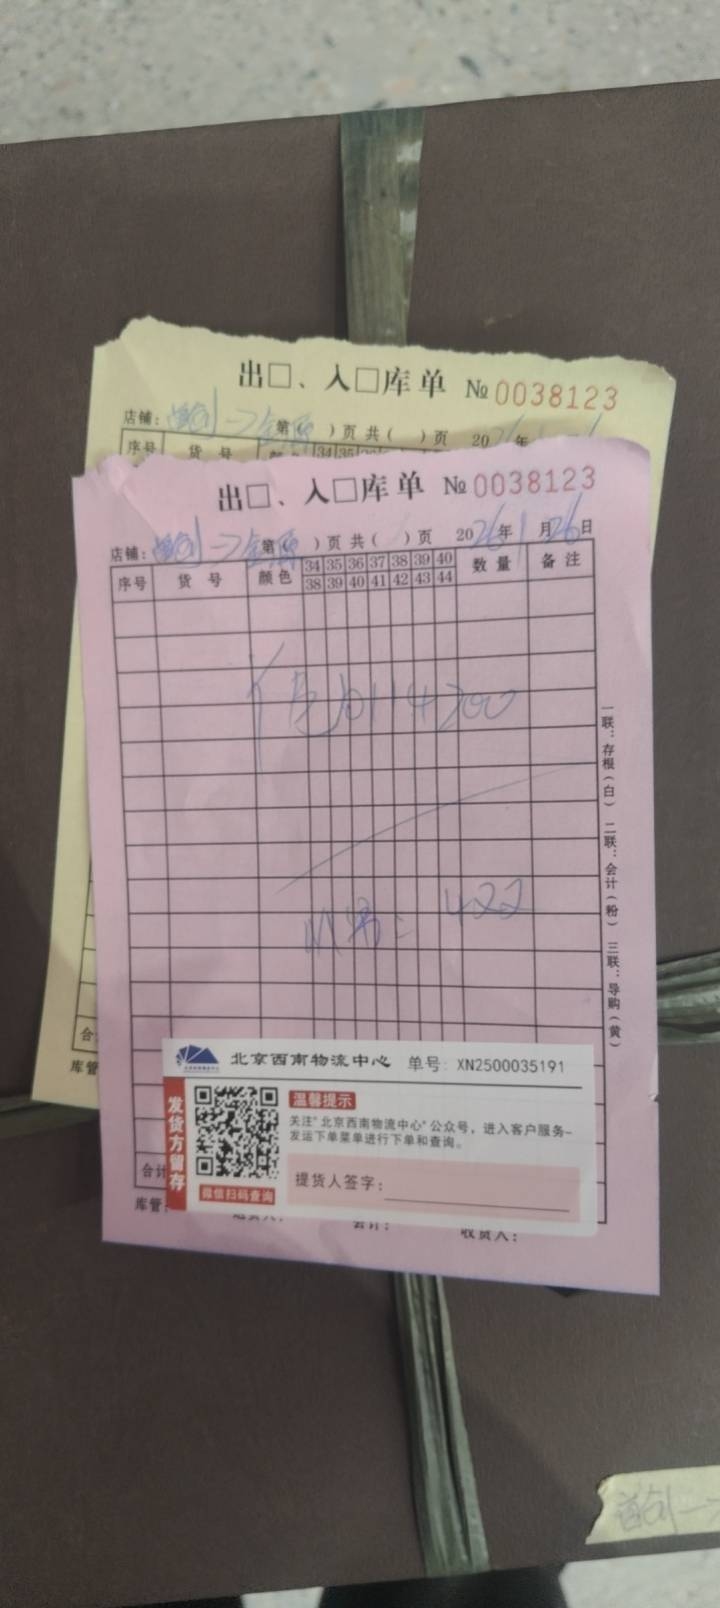 出□、入□库单 № 0038123
店铺: 第( )页 共( )页 20 年
序号 货号
出□、入□库单 № 0038123
店铺: 首创→金源 第( )页 共( )页 2026年1月26日
序号 货号 颜色 34 35 36 37 38 39 40 数量 备注
38 39 40 41 42 43 44
422
一联:存根(白) 二联:会计(粉) 三联:导购(黄)
合计
库管:
会计:
收货人:
北京西南物流中心 单号: XN2500035191
发货方留存
温馨提示
关注"北京西南物流中心"公众号,进入客户服务-
发运下单菜单进行下单和查询。
提货人签字:
微信扫码查询
首创